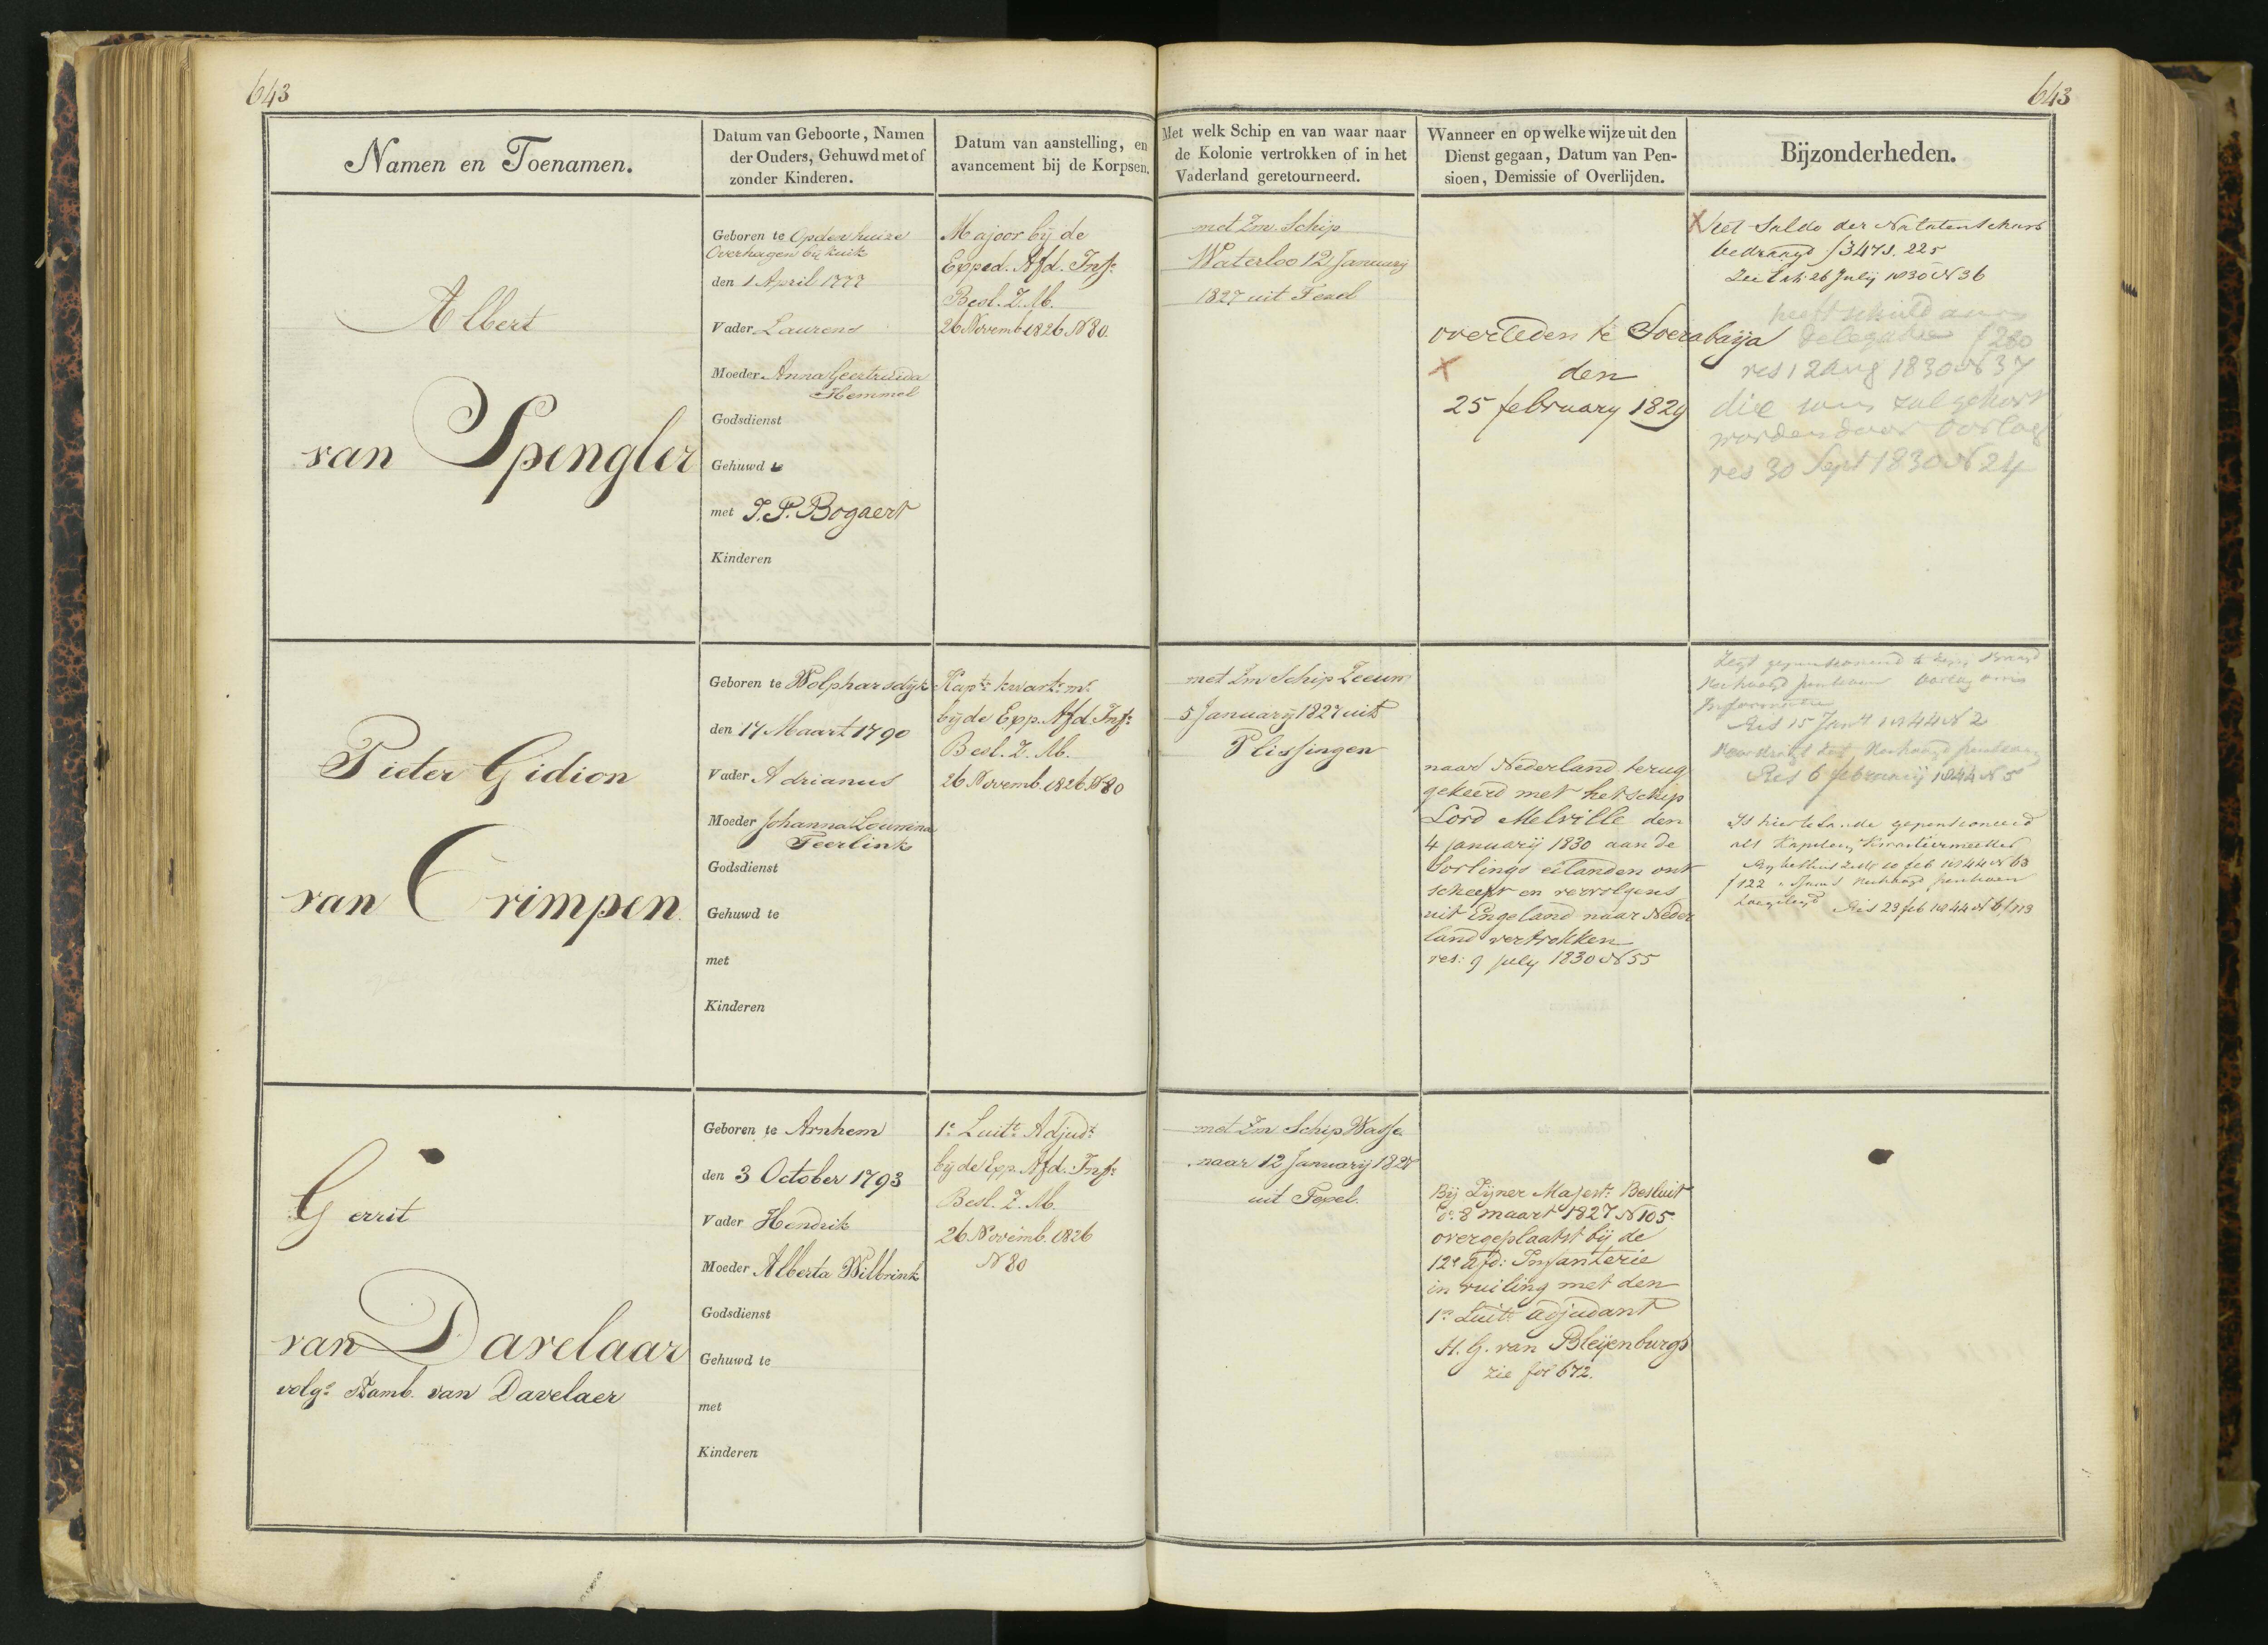 643
643
Namen en Toenamen.
Datum van Geboorte, Namen
der Ouders, Gehuwd met of
zonder Kinderen.
Datum van aanstelling, en
avancement bij de Korpsen.
Met welk Schip en van waar naar
de Kolonie vertrokken of in het
Vaderland geretourneerd.
Wanneer en op welke wijze uit den
Dienst gegaan, Datum van Pen-
sioen, Demissie of Overlijden.
Bijzonderheden.
Albert
van Spengler
Geboren te Opden huize
Overhagen bij
den 1 April 1777
Vader Laurens
Moeder Anna Geertruida
Hemmel
Godsdienst
Gehuwd te
met J. P. Bogaert
Kinderen
Majoor bij de
Exped. Afd. Inf.
Besl. Z. M.
26 Novemb 1826 N 80.
met Zm Schip
Waterloo 12 January
1827 uit Texel
overleden te Soerabaija
den
25 february 1829
Het Saldo der Nalatenschap
bedraagt f 3471. 225
26 July 1830 N 36
heeft schuld aan
delegatie f 280
res 12 aug 1830 N 37
die som zal gekort
worden door oorlog
res 30 Sept 1830 N 24
Pieter Gidion
van Crimpen
Geboren te Wolpharsdijk
den 17 Maart 1790
Vader Adrianus
Moeder Johanna Lourina
Feerlink
Godsdienst
Gehuwd te
met
Kinderen
Kapt: kwart: mr
bij de Exp. Afd. Inf:
Besl. Z. M.
26 Novemb. 1826 N 80
met Zm Schip Zeeuw
5 January 1827 uit
Vlissingen
naar Nederland terug
gekeerd met het schip
Lord Melville den
4 januarij 1830 aan de
Sorlings eilanden ont
scheept en vervolgens
uit Engeland naar Neder
land vertrokken
res: 9 july 1830 N 55
Zegt gepensioneerd te zijn
Verhoogd pensioen
Res 15 Jan 1844 N 2
Verhoogd pensioen
Res 6 februarij 1844 N 5
Is hier te lande gepensioneerd
als Kapitein Kwartiermeester
bij besluit 10 feb 1844 N 63
f 122 verhoogd pensioen
toegelegd Res 29 feb 1844 N
Gerrit
van Davelaar
volgs Stamb. van Davelaer
Geboren te Arnhem
den 3 October 1793
Vader Hendrik
Moeder Alberta Wilbrink
Godsdienst
Gehuwd te
met
Kinderen
1e Luitt: Adjudt:
bij de Exp. Afd. Inf:
Besl. Z. M.
26 Novemb. 1826
N 80
met Zm Schip Wasse
naar 12 Januarij 1827
uit Texel.
Bij Zijner Majest: Besluit
do 8 maart 1827 N 105
overgeplaatst bij de
12e afd: Infanterie
in ruiling met den
1n Luit: adjudant
H. G. van Bleijenburgh
zie fol 672.